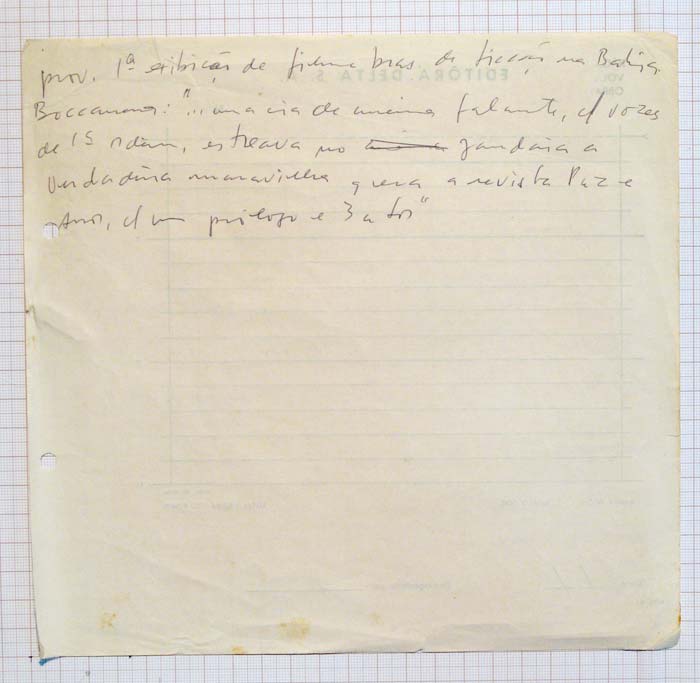 prov. 1ª exibição de filme bras. de ficção na Bahia.
Boccanera: "... uma cia de cinema falante, c/ vozes
de 1ª ordem, estreava no Jandaia a
verdadeira maravilha q era a revista Paz e
Amor, c/ um prólogo e 3 atos"
EDITÔRA DELTA S. A.